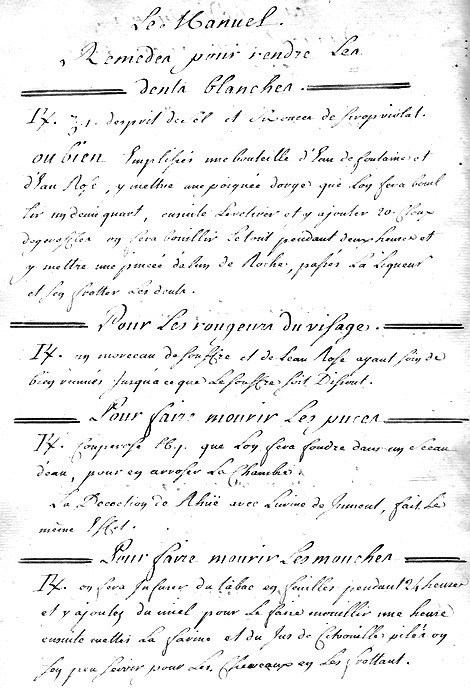 Le Manuel.
Remedes pour rendre Les
dents blanches.
℞. ℥1. desprit de sel et six onces de sirop violat.
ou bien Emplisses une bouteille d'Eau de fontaine et
d'Eau Rose, y mettre une poignée dorge que Lon fera bouil
lir un demi quart, ensuite Le retirer et y ajouter 20. Cloux
de gerofles on fera bouillir Le tout pendant deux heures et
y mettre une pincée dalun de Roche, passés La Liqueur
et sen frotter Les dents.
Pour Les rougeurs du visage.
℞. un morceau de souffre et de Leau Rose ayant soin de
bien remués Jusqua ce que Le souffre soit Disout.
Pour faire mourir Les puces
℞. Couperose lb.j. que Lon fera foudre dans un Sceau
deau, pour en arroser La Chambre
La Decoction de Rhüe avec Lurine de Jument, fait Le
même Effet.
Pour faire mourir Les mouches
℞. on fera Infuser du tabac en feuilles pendant 24 heures
et y ajoutés du miel pour Le faire bouillir une heure
ensuite mettes La farine et du Jus de Citrouille pilée on
sen peu servir pour Les Chevaux en Les frottant.